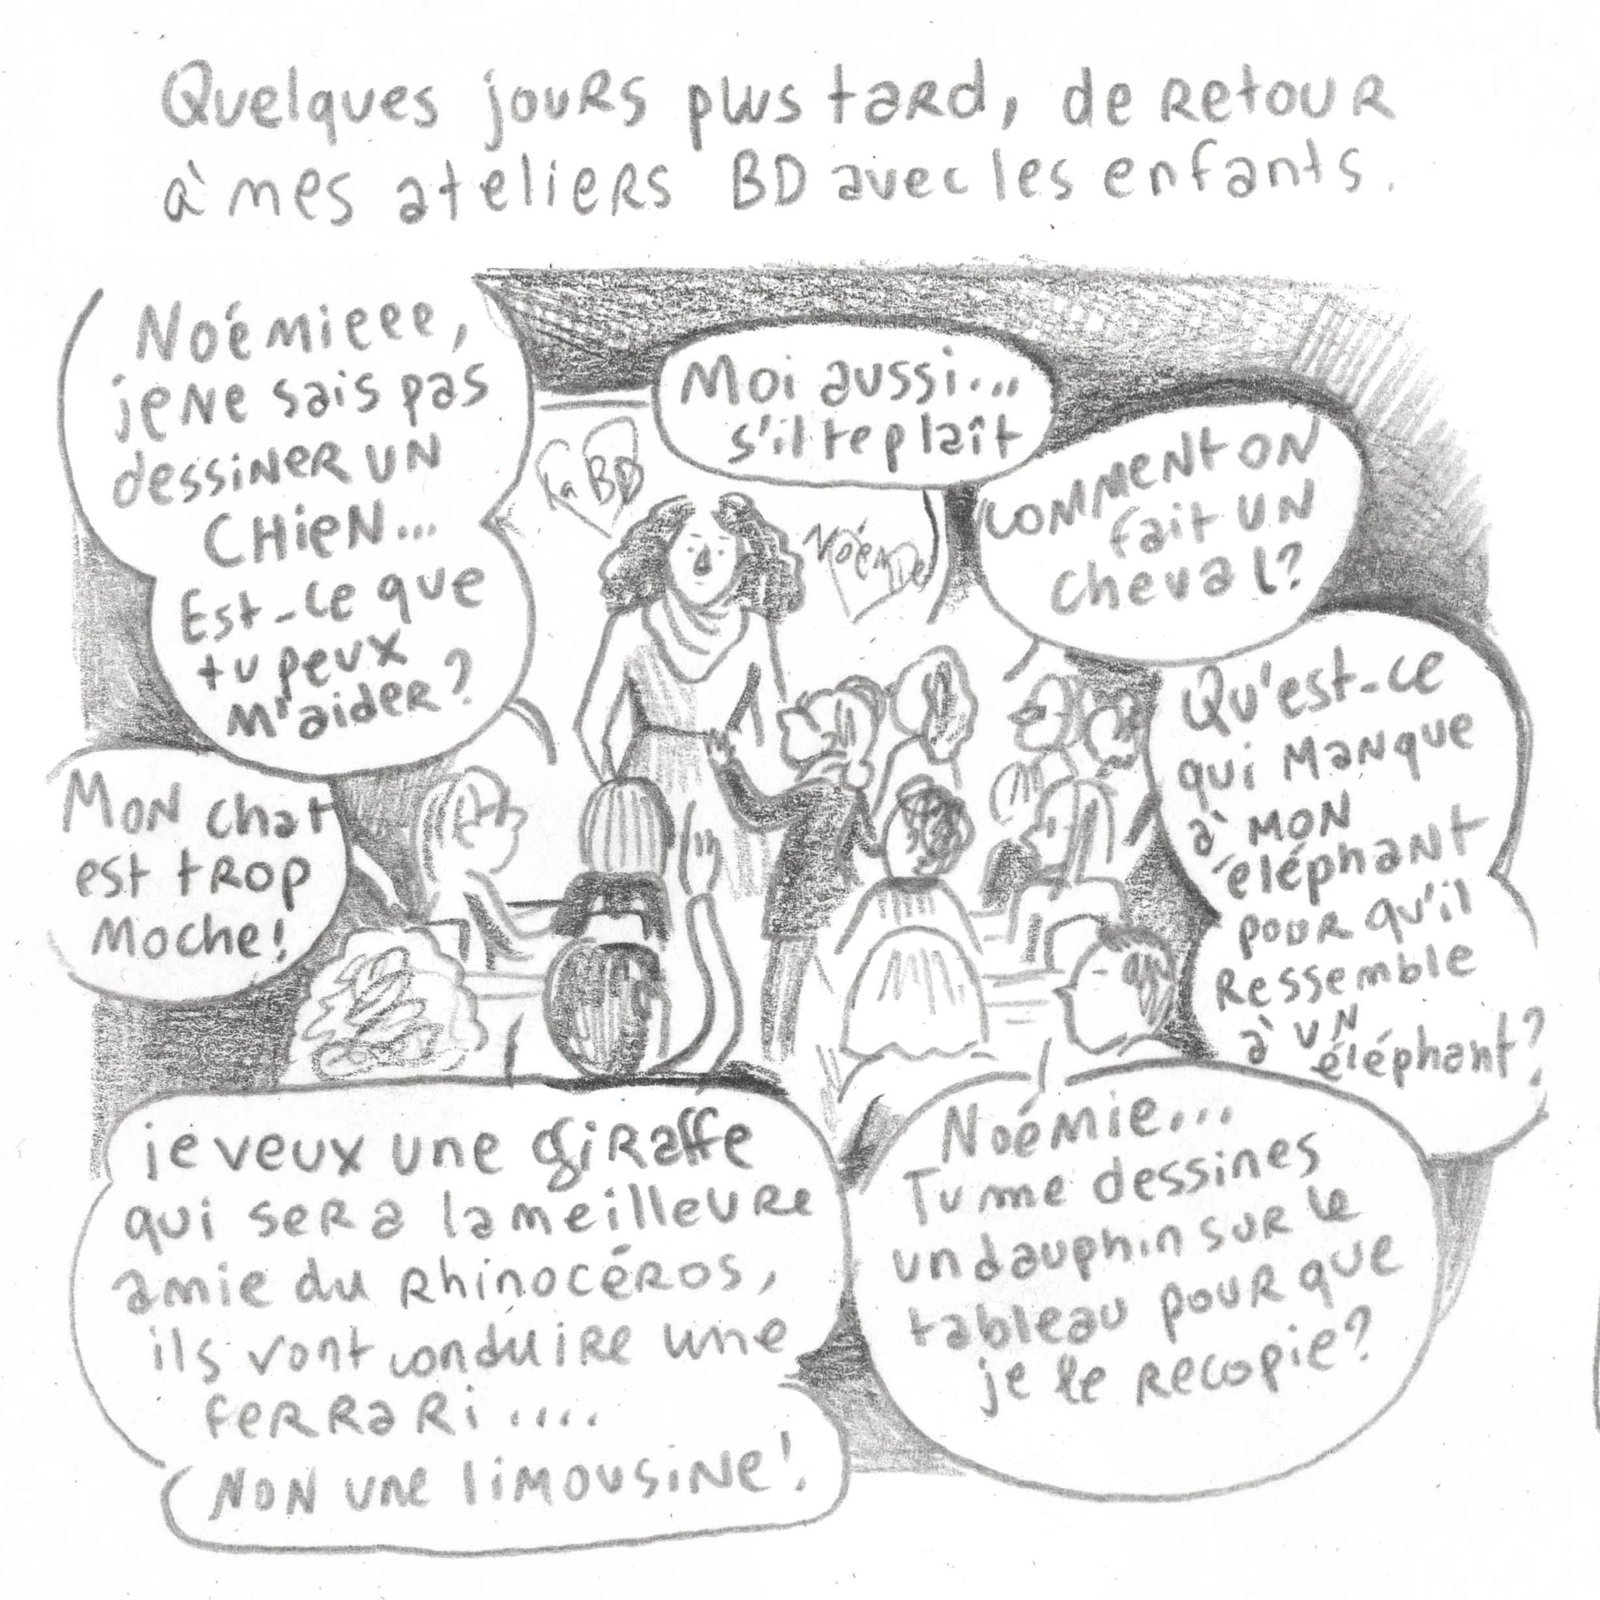 Quelques jours plus tard, de retour
à mes ateliers BD avec les enfants.
Noémieee,
je ne sais pas
dessiner un
chien...
Est-ce que
tu peux
m'aider?
Moi aussi...
s'il te plaît
Comment on
fait un
cheval?
La BD
Noémie
Mon chat
est trop
moche!
Qu'est-ce
qui manque
à mon
éléphant
pour qu'il
ressemble
à un
éléphant?
je veux une giraffe
qui sera la meilleure
amie du rhinocéros,
ils vont conduire une
ferrari....
Non une limousine!
Noémie...
Tu me dessines
un dauphin sur le
tableau pour que
je le recopie?